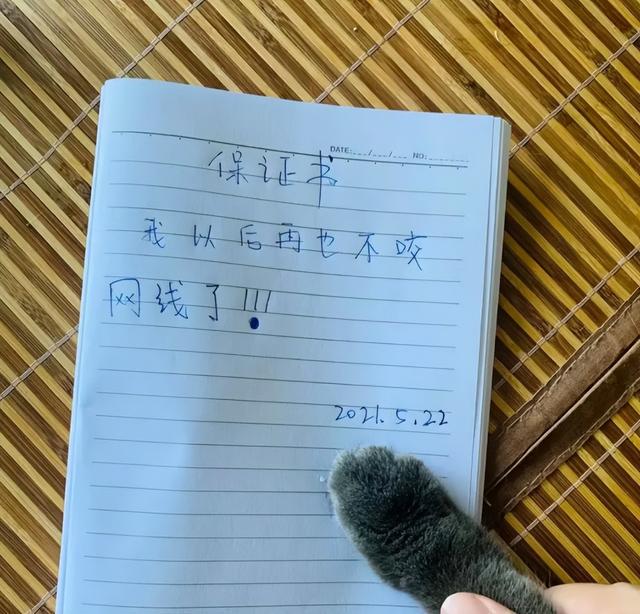 DATE: __/__/__ NO:______
保证书
我以后再也不咬
网线了!!!
2021.5.22